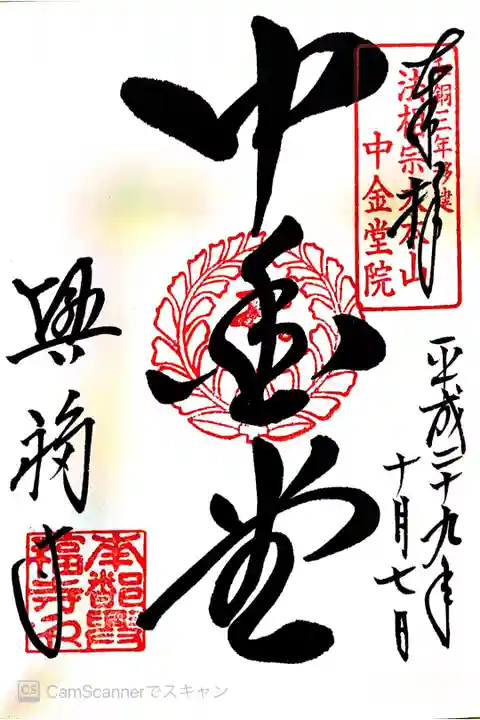 奉拝
和銅三年移建
法相宗大本山
中金堂院
平成二十九年
十月七日
中金堂
興福寺
南都興
福寺印
CS CamScannerでスキャン